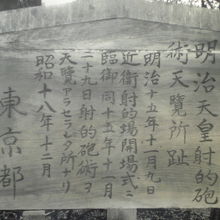 明治天皇射的砲
術天覽所趾
明治十五年十一月九日
近衛射的場開場式ニ
臨御同十五年十一月
二十九日射的砲術ヲ
天覽アラセラレタ所ナリ
昭和十八年十二月
東京都